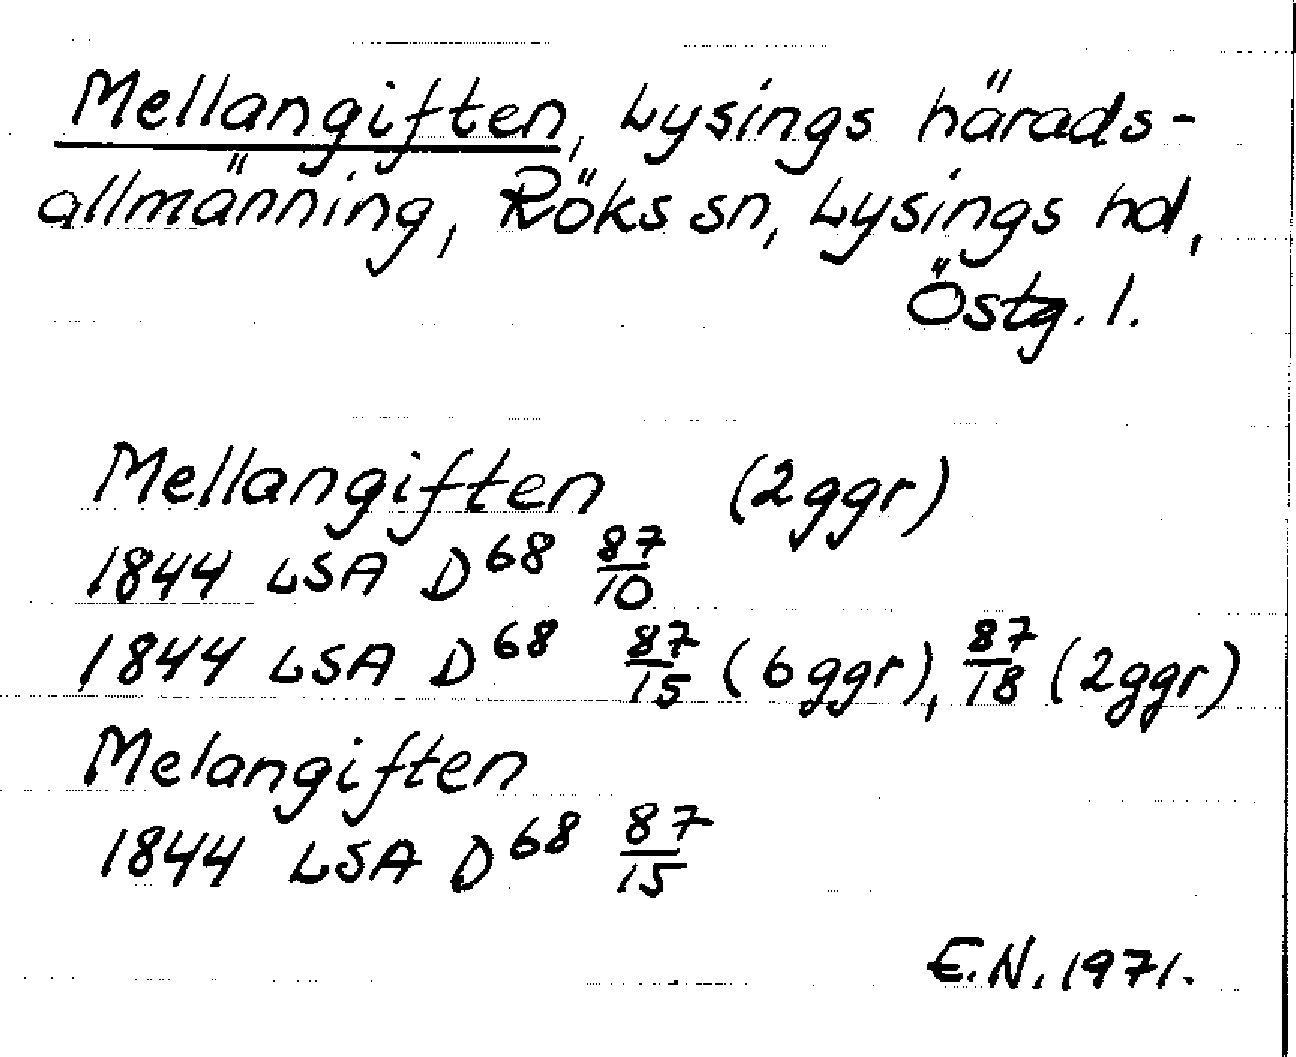 Mellangiften, Lysings härads-
allmänning, Röks sn, Lysings hd,
Östg. l.
Mellangiften (2ggr)
1844 LSA D68 87/10
1844 LSA D68 87/15 (6ggr), 87/18 (2ggr)
Melangiften
1844 LSA D68 87/15
E.N. 1971.